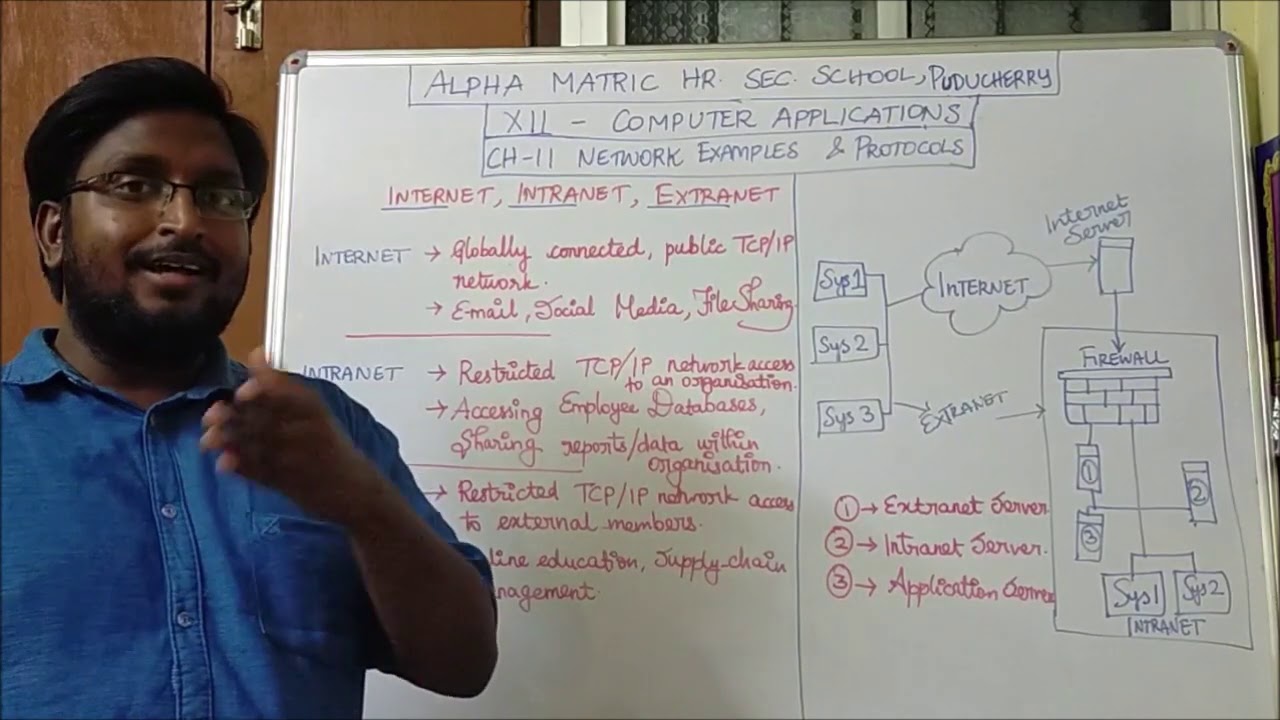 ALPHA MATRIC HR. SEC. SCHOOL, PUDUCHERRY
XII - COMPUTER APPLICATIONS
CH-11 NETWORK EXAMPLES & PROTOCOLS
INTERNET, INTRANET, EXTRANET
INTERNET → Globally connected, public TCP/IP
network.
→ E-mail, Social Media, File Sharing
INTRANET → Restricted TCP/IP network access
to an organisation.
→ Accessing Employee Databases,
Sharing reports/data within
organisation.
→ Restricted TCP/IP network access
to external members.
line education, Supply-chain
nagement.
Internet
Server
Sys1
INTERNET
Sys 2
FIREWALL
Sys 3
EXTRANET
1
2
3
① → Extranet Server
② → Intranet Server.
③ → Application Server
Sys1
Sys2
INTRANET